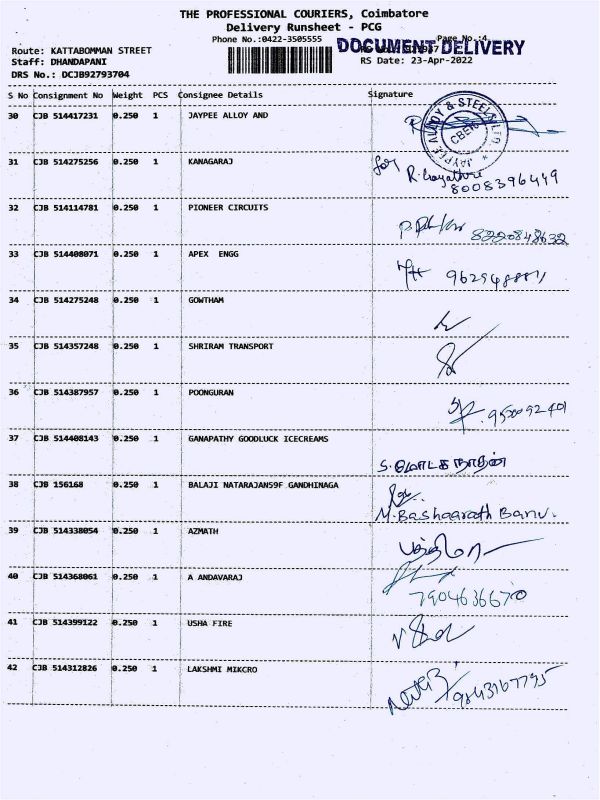 THE PROFESSIONAL COURIERS, Coimbatore
Delivery Runsheet - PCG
Phone No.:0422-3505555
Page No.:4
DOCUMENT DELIVERY
Route: KATTABOMMAN STREET
Staff: DHANDAPANI
RS Date: 23-Apr-2022
DRS No.: DCJB92793704
S No Consignment No Weight PCS Consignee Details Signature
30 CJB 514417231 0.250 1 JAYPEE ALLOY AND
JAYPEE ALLOY & STEELS
CBE
31 CJB 514275256 0.250 1 KANAGARAJ
for
8008396449
32 CJB 514114781 0.250 1 PIONEER CIRCUITS
8220848632
33 CJB 514408071 0.250 1 APEX ENGG
34 CJB 514275248 0.250 1 GOWTHAM
35 CJB 514357248 0.250 1 SHRIRAM TRANSPORT
36 CJB 514387957 0.250 1 POONGURAN
37 CJB 514408143 0.250 1 GANAPATHY GOODLUCK ICECREAMS
38 CJB 156168 0.250 1 BALAJI NATARAJAN59F GANDHINAGA
M. Bashaarath Banu.
39 CJB 514338054 0.250 1 AZMATH
40 CJB 514368061 0.250 1 A ANDAVARAJ
7904636670
41 CJB 514399122 0.250 1 USHA FIRE
42 CJB 514312826 0.250 1 LAKSHMI MIKCRO
9843167795